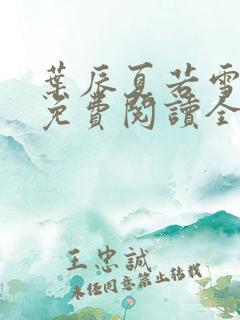 葉辰夏若雪
免費閱讀全
王忠誠
未经同意禁止转载